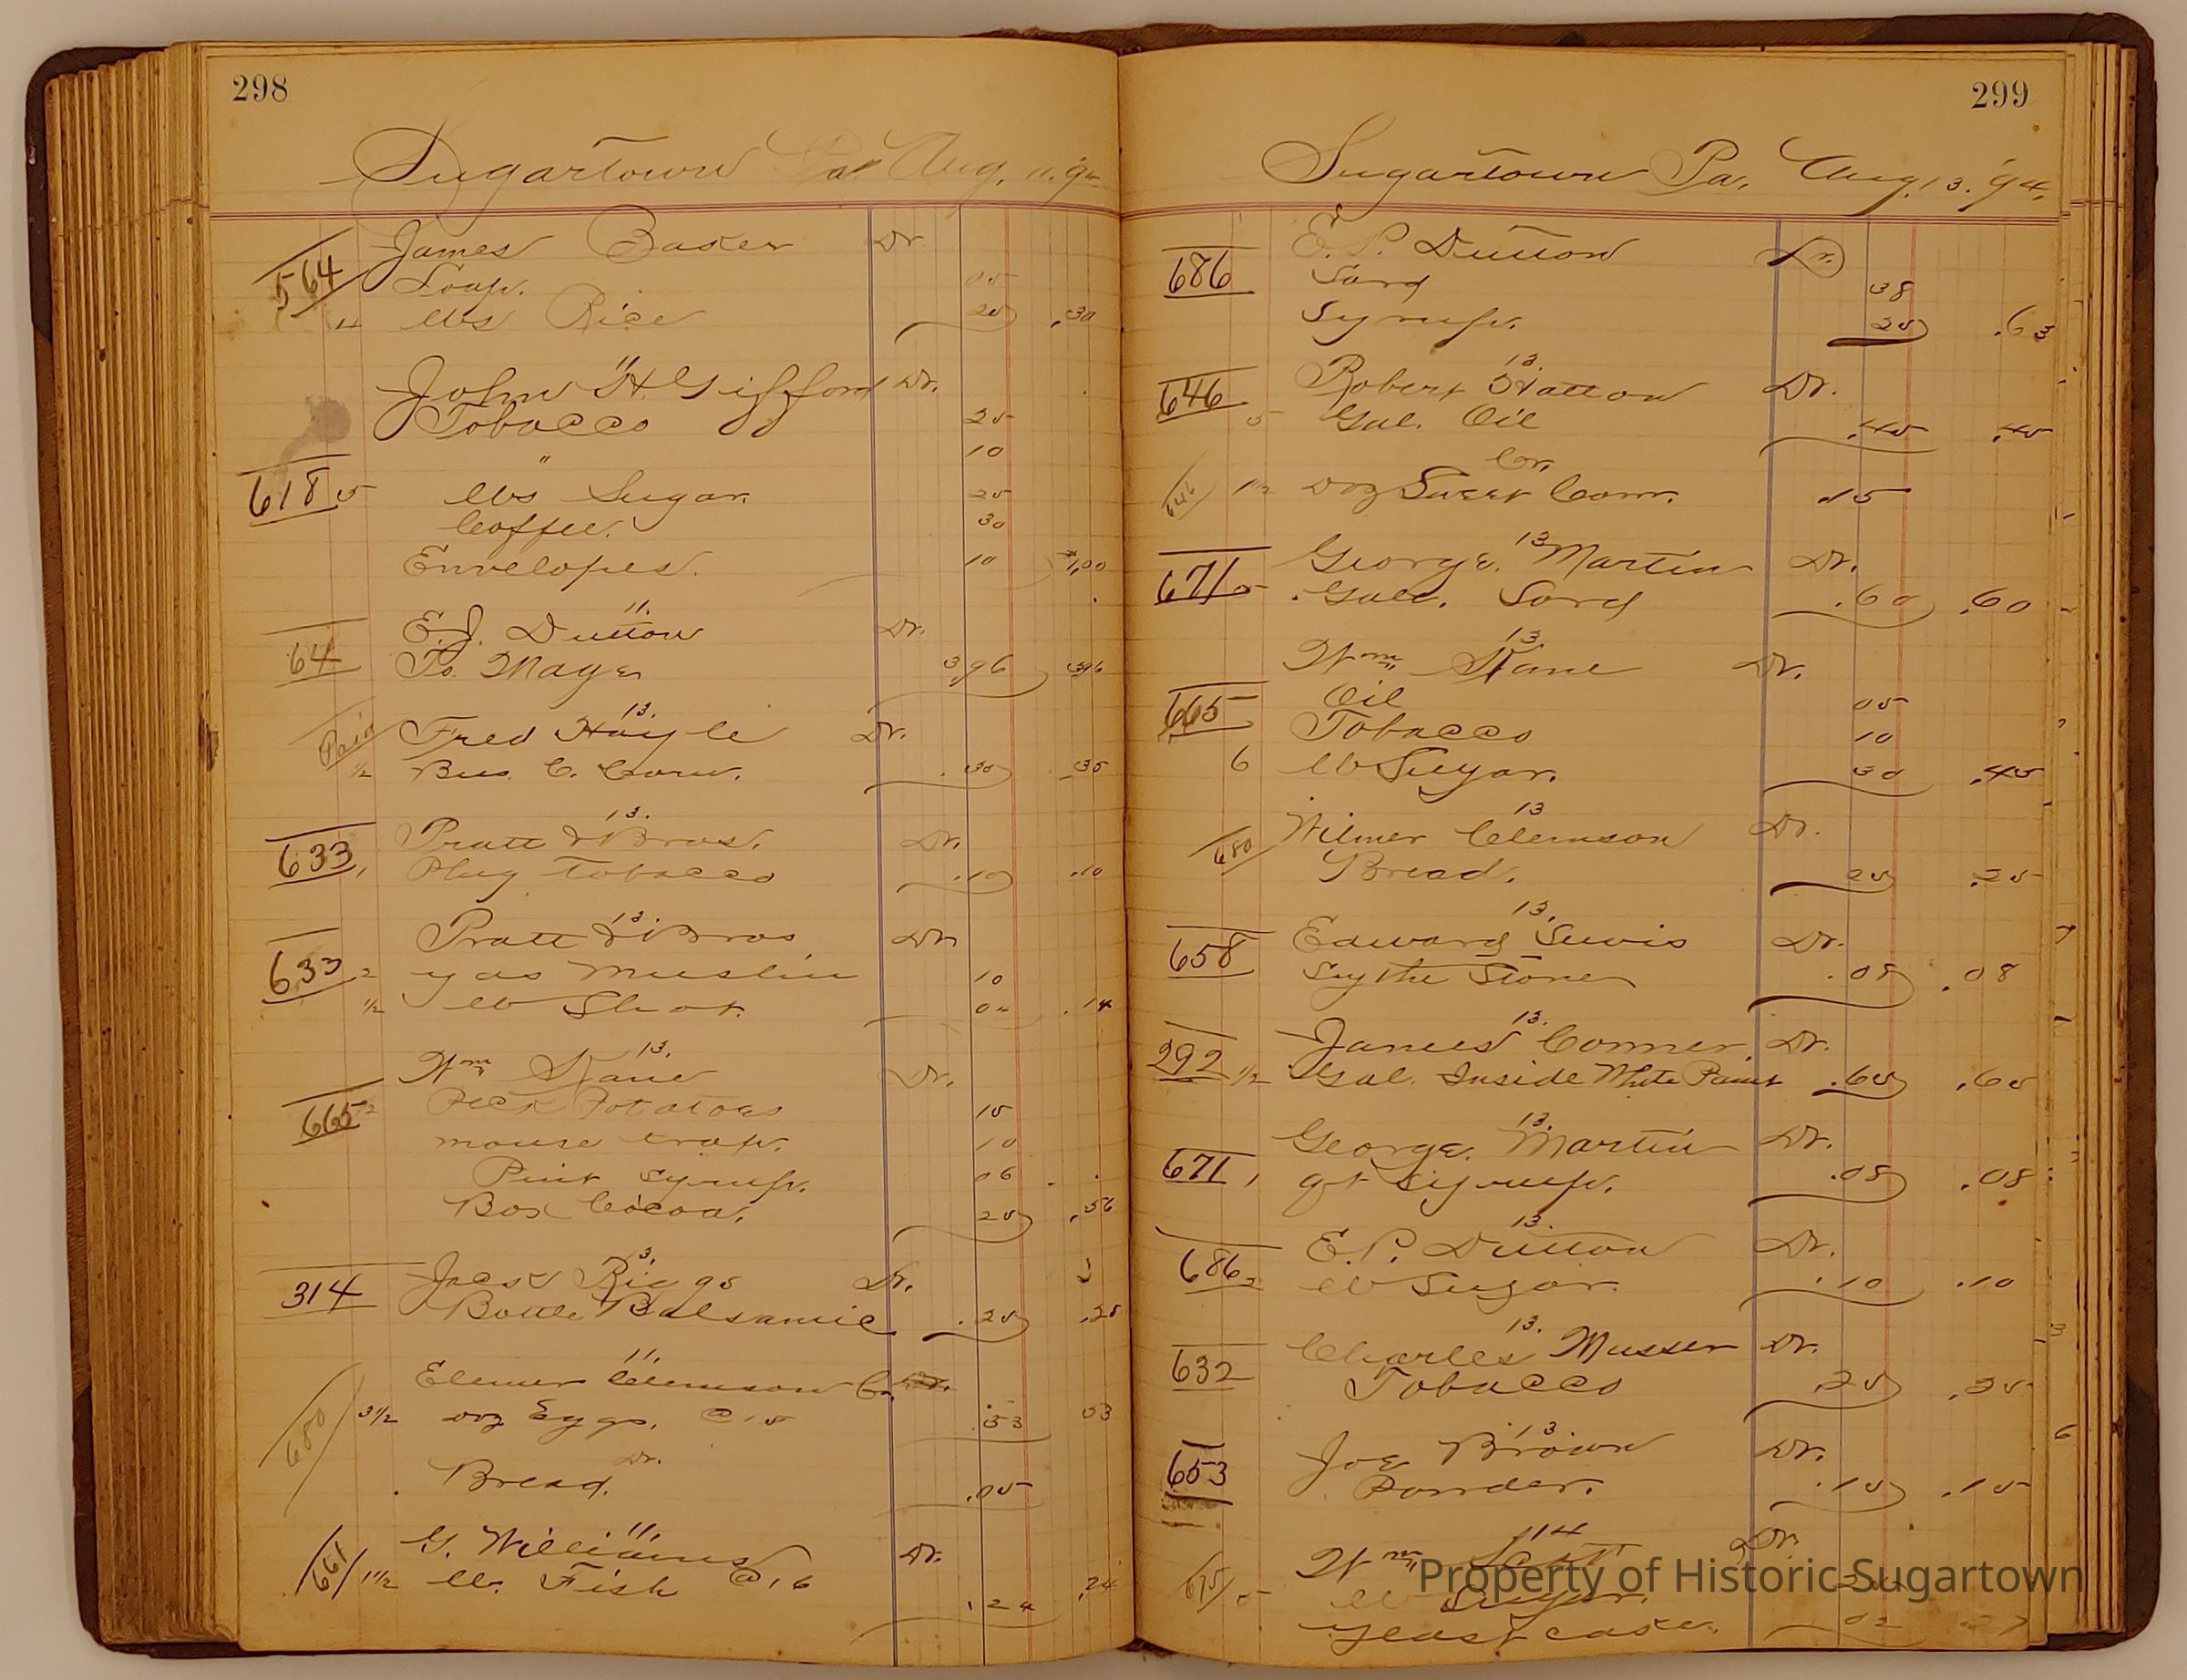 298
Sugartown Pa Aug. 11. 94
James Baker Dr.
564 Soap. 05
4 lbs Rice 25 .30
11
John H. Gifford Dr.
Tobacco 25
" 10
618 5 lbs Sugar. 25
Coffee. 30
Envelopes. 10 1,00
11.
E.J. Dutton Dr.
64 To. Wages 3,96 3,96
13.
Paid Fred Dr.
1/2 Bus. C. Corn. .35 .35
13.
Pratt & Bros. Dr.
633 1 Plug Tobacco .10 .10
13.
Pratt & Bros Dr.
633 2 yds Muslin 10
1/2 lb Shot. 04 .14
13.
Wm Kane Dr.
665 Peck Potatoes 15
mouse trap. 10
Pint Syrup. 06
Box Cocoa. 25 .56
13.
Jack Riggs Dr.
314 Bottle Balsamic .25 .25
11.
Elmer Clemson Cr.
680 3 1/2 Doz Eggs. @ 15 .53 53
Dr.
Bread. .05
11.
G. Williams Dr.
661 1 1/2 lb. Fish @ 16 .24 .24
299
Sugartown Pa. Aug. 13. 94.
E. P. Dutton Dr.
686 Lard 38
Syrup. 25 .63
13.
Robert Hatton Dr.
646 5 Gal. Oil .45 .45
Cr.
646 1 1/2 Doz Sweet Corn. .15
13
George. Martin Dr.
671 5 Gall. Lard .60 .60
13.
Wm Kane Dr.
665 Oil 05
Tobacco 10
6 lb Sugar. 30 .45
13
Wilmer Clemson Dr.
680 Bread. 25 .25
13.
658 Edward Lewis Dr.
Sythe Stone .08 .08
13.
James Conner. Dr.
292 1/2 Gal. Inside White Paint .65 .65
13.
George. Martin Dr.
671 1 qt Syrup. .08 .08
13.
E.P. Dutton Dr.
686 2 lb Sugar. .10 .10
13.
Charles Musser Dr.
632 Tobacco .25 .25
13
Joe Brown Dr.
653 Powder. .15 .15
14
Wm Scott Dr.
675 5 lb Sugar.
Yeast cake. 02
Property of Historic Sugartown